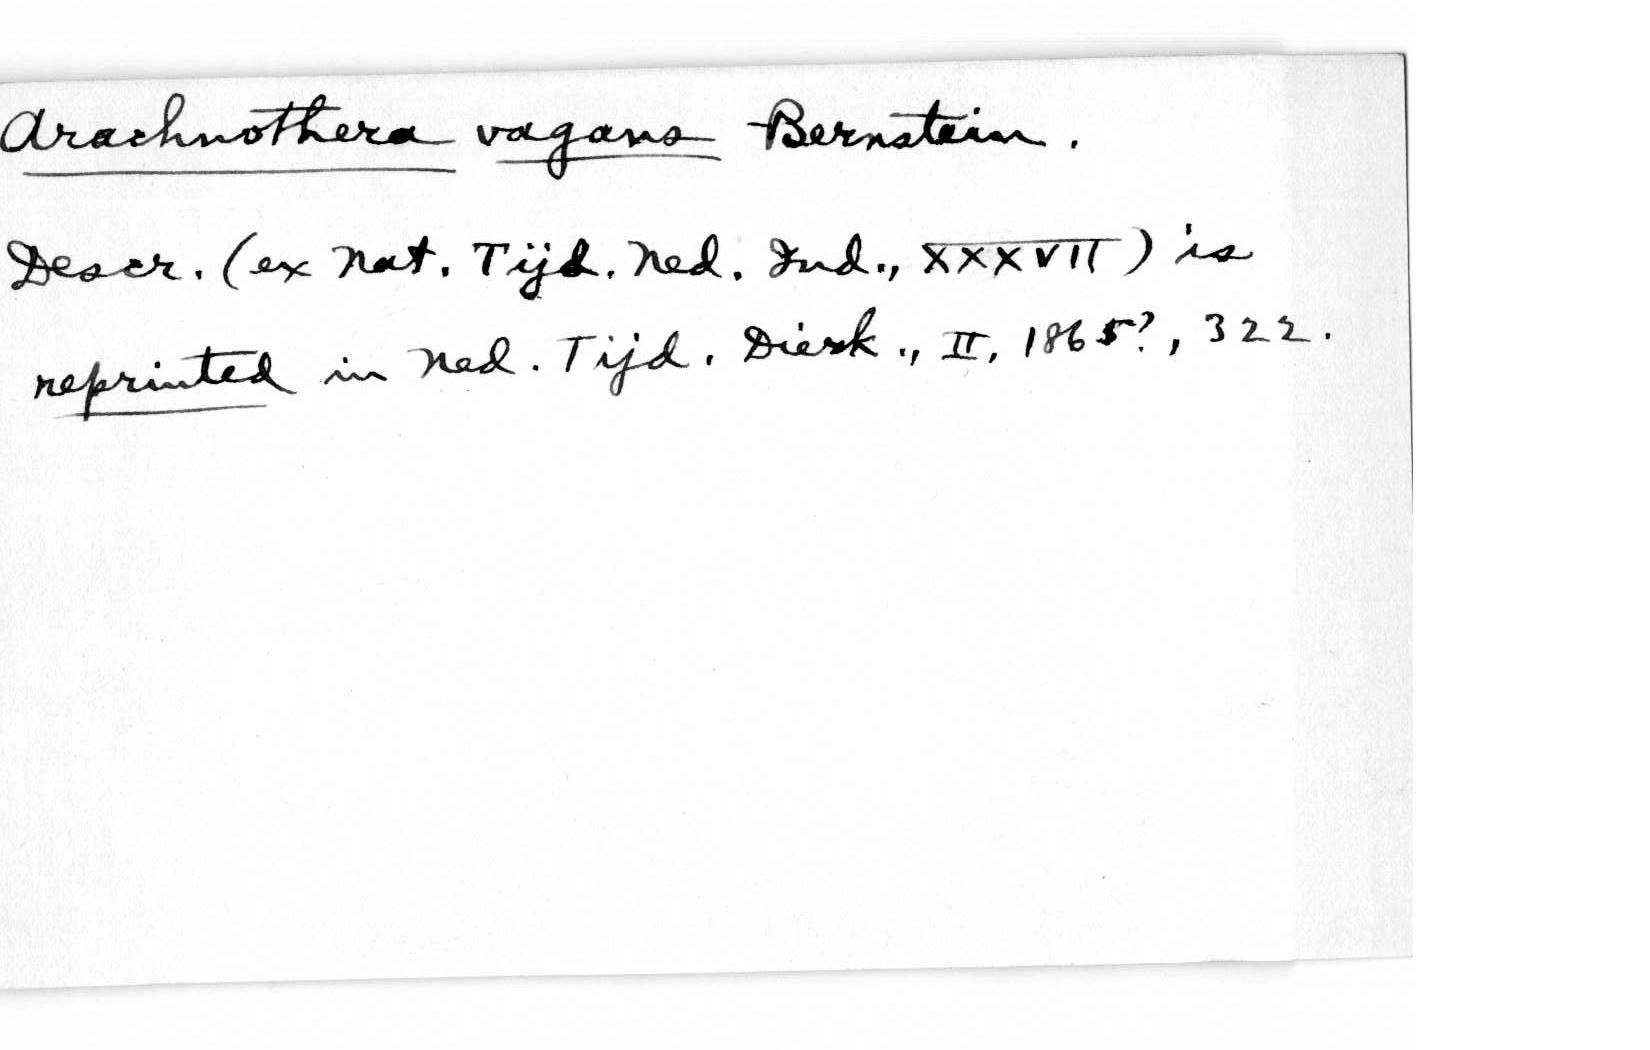 Arachnothera vagans Bernstein.
Descr. (ex Nat. Tijd. Ned. Ind., XXXVII) is
reprinted in Ned. Tijd. Dierk., II, 1865?, 322.